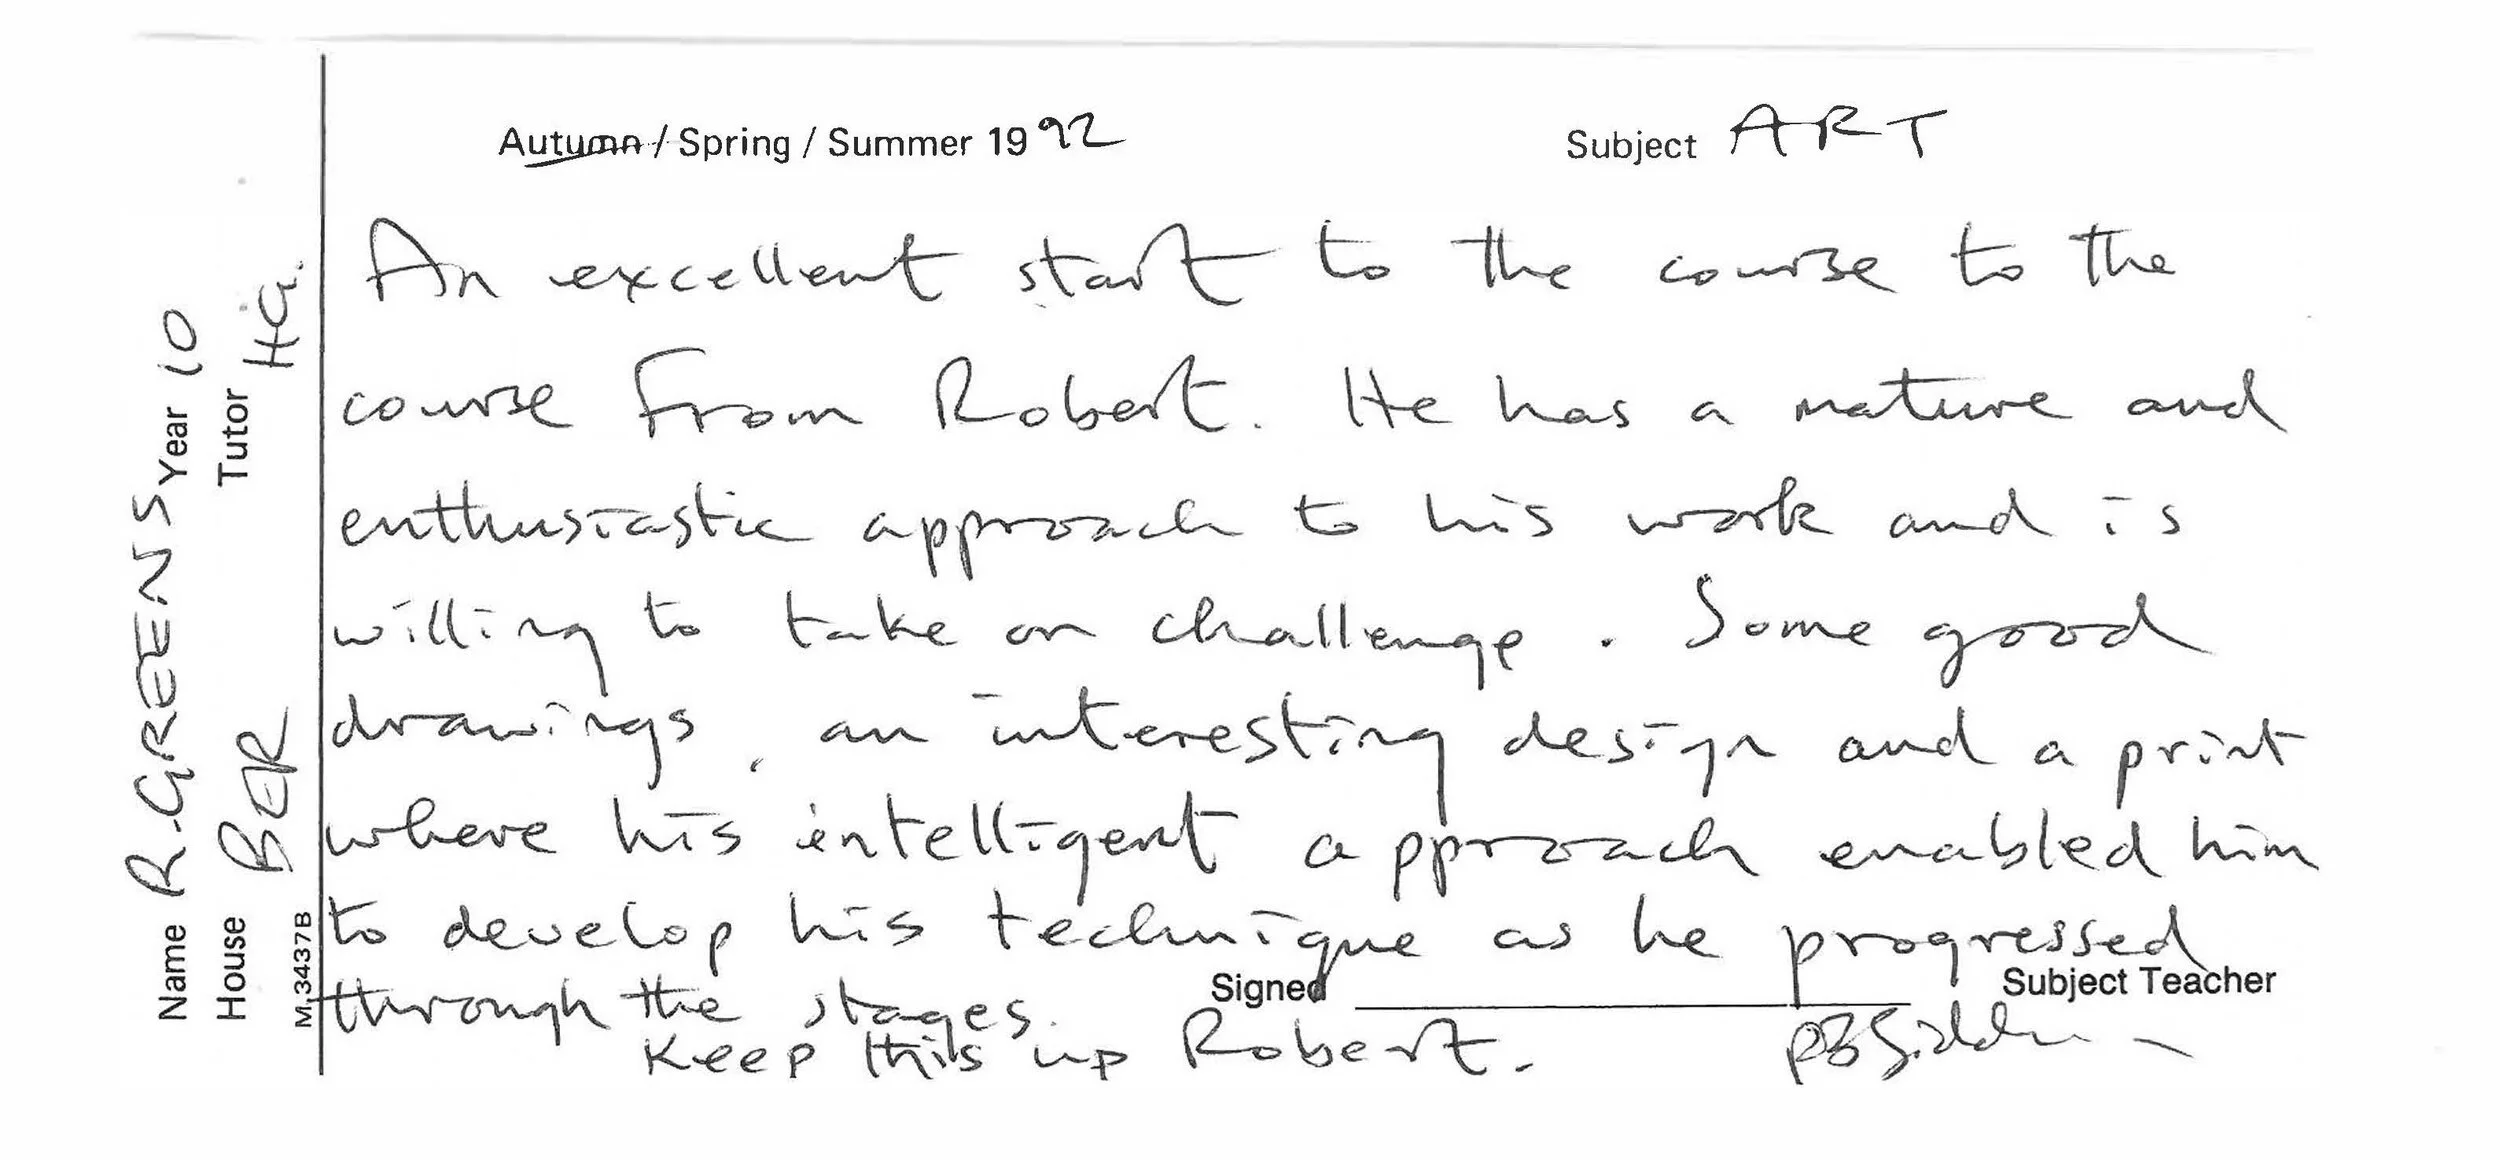 Autumn / Spring / Summer 1992
Subject ART
An excellent start to the course to the
course from Robert. He has a mature and
enthusiastic approach to his work and is
willing to take on challenge. Some good
drawings, an interesting design and a print
where his intelligent approach enabled him
to develop his technique as he progressed
through the stages.
Signed Subject Teacher
Keep this up Robert.
Name R. GREENS Year 10
House Tutor HG.
M.3437B